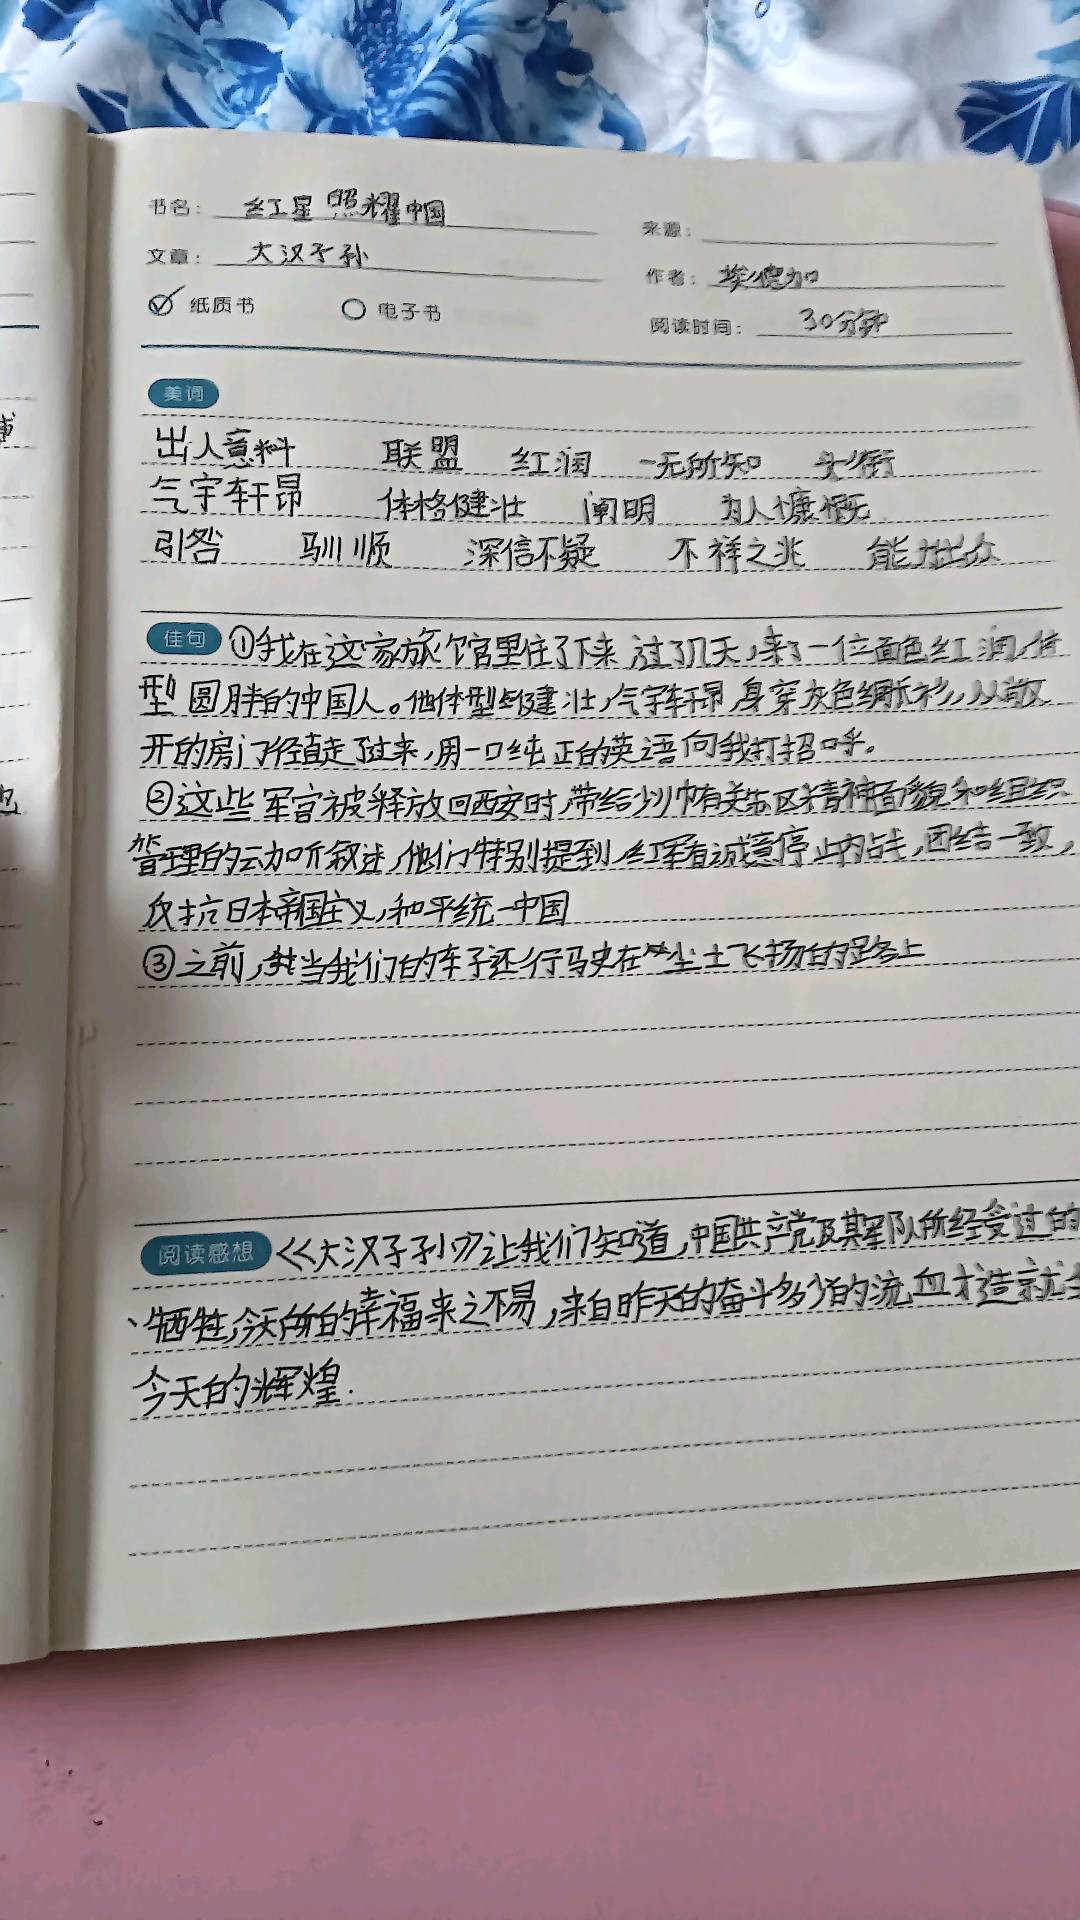 书名： 红星照耀中国
来源：
文章： 大汉子孙
作者： 埃德加
纸质书 电子书
阅读时间： 30分钟
美词
出人意料 联盟 红润 一无所知 头衔
气宇轩昂 体格健壮 阐明 为人慷慨
引咎 驯顺 深信不疑 不祥之兆 能力出众
佳句 ①我在这家旅馆里住了下来 过了几天，来了一位面色红润，体
型圆胖的中国人。他体型健壮，气宇轩昂，身穿灰色绸长衫，从敞
开的房门径直走了过来，用一口纯正的英语向我打招呼。
②这些军官被释放回西安时，带给少帅有关苏区精神面貌和组织
管理的动听叙述，他们特别提到，红军有诚意停止内战，团结一致，
反抗日本帝国主义，和平统一中国
③之前，当我们的车子还行驶在尘土飞扬的路上
阅读感想 《大汉子孙》让我们知道，中国共产党及其军队所经受过的
、牺牲，今天所的幸福来之不易，来自昨天的奋斗多少的流血才造就
今天的辉煌.